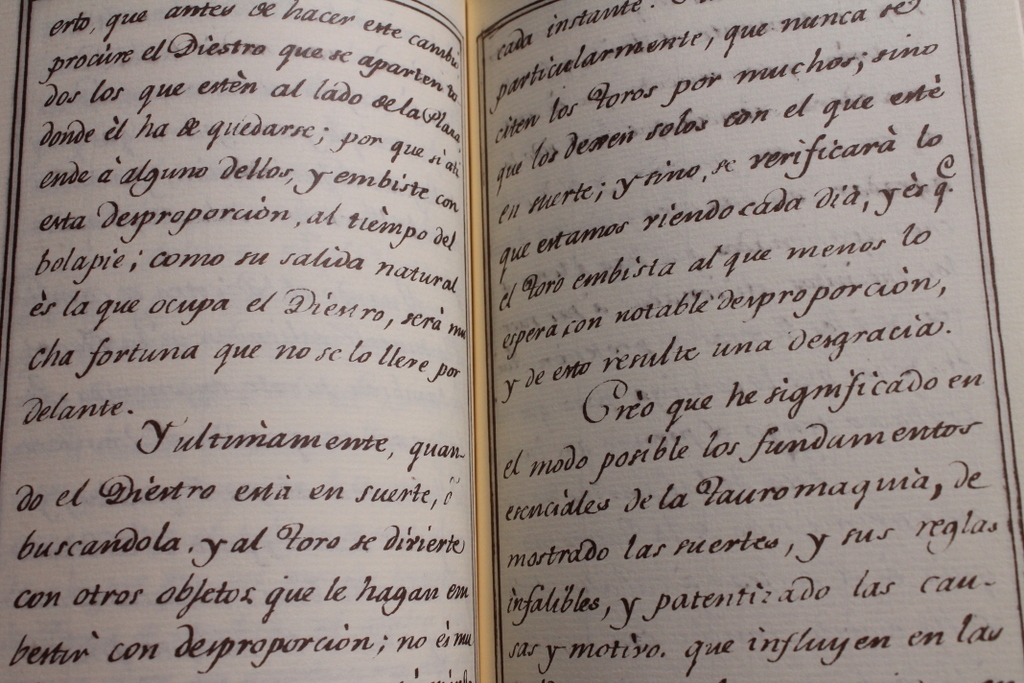 erto, que antes de hacer este cambio
procúre el Diestro que se aparten to
dos los que estèn al lado de la Plaza
donde èl ha de quedarse; por que si ati
ende à alguno dellos, y embiste con
esta desproporciòn, al tièmpo del
bolapie; como su salida natural
ès la que ocupa el Diestro, serà mu
cha fortuna que no se lo lleve por
delante.
Y ultimamente, quan-
do el Dièstro està en suerte, ò
buscandola, y al Toro se divierte
con otros objetos que le hagan em
bestir con desproporciòn; no ès mu
cada instante.
particularmente, que nunca se
citen los Toros por muchos; sino
que los dexen solos con el que estè
en suerte; y sino, se verificarà lo
que estamos viendo cada dia, y ès q.e
el Toro embista al que menos lo
espera con notable desproporciòn,
y de esto resulte una desgracia.
Crèo que he significado en
el modo posible los fundamentos
esenciàles de la Tauromaquia, de
mostrado las suertes, y sus reglas
infalibles, y patentizado las cau-
sas y motivos que influyen en las